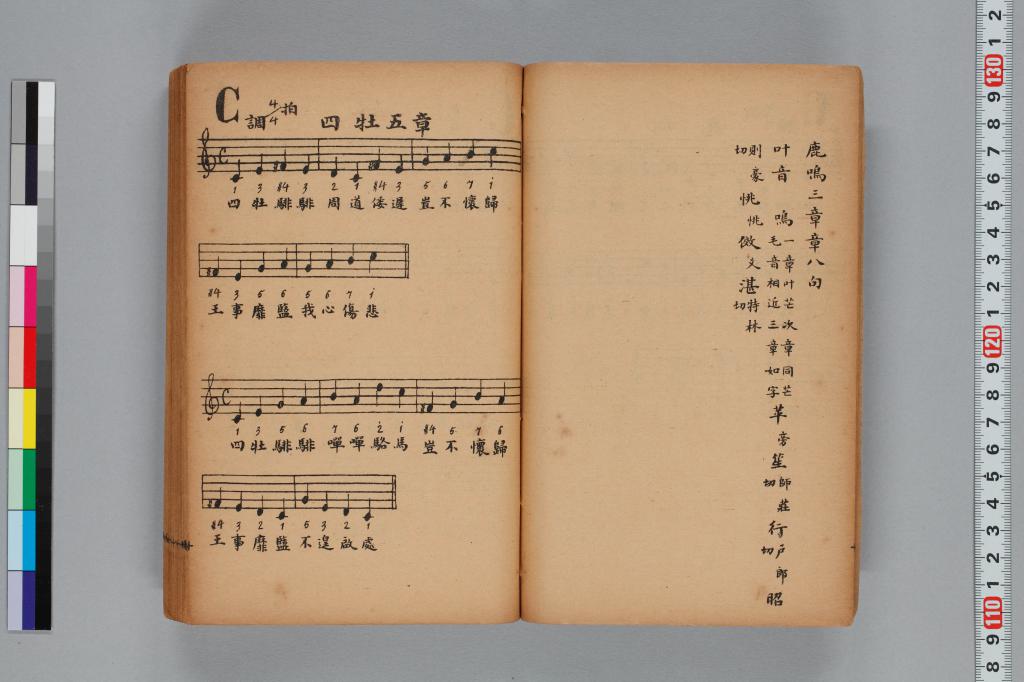 鹿鳴三章章八句
叶音 鳴 一章叶芒次章同芒毛音相近三章如字 苹 旁 笙 師莊切 行 戶郎切 昭
則豪切 恌 恌 傚 爻 湛 特林切
C調 4/4拍 四牡五章
1 3 #4 3 2 1 #4 3 5 6 7 i
四牡騑騑周道倭遲豈不懷歸
#4 3 5 6 5 6 7 i
王事靡盬我心傷悲
1 3 5 6 7 6 2 i #4 5 7 6
四牡騑騑嘽嘽駱馬豈不懷歸
#4 3 2 1 5 3 2 1
王事靡盬不遑啟處
2 1 130 9 8 7 6 5 4 3 2 1 120 9 8 7 6 5 4 3 2 1 110 9 8